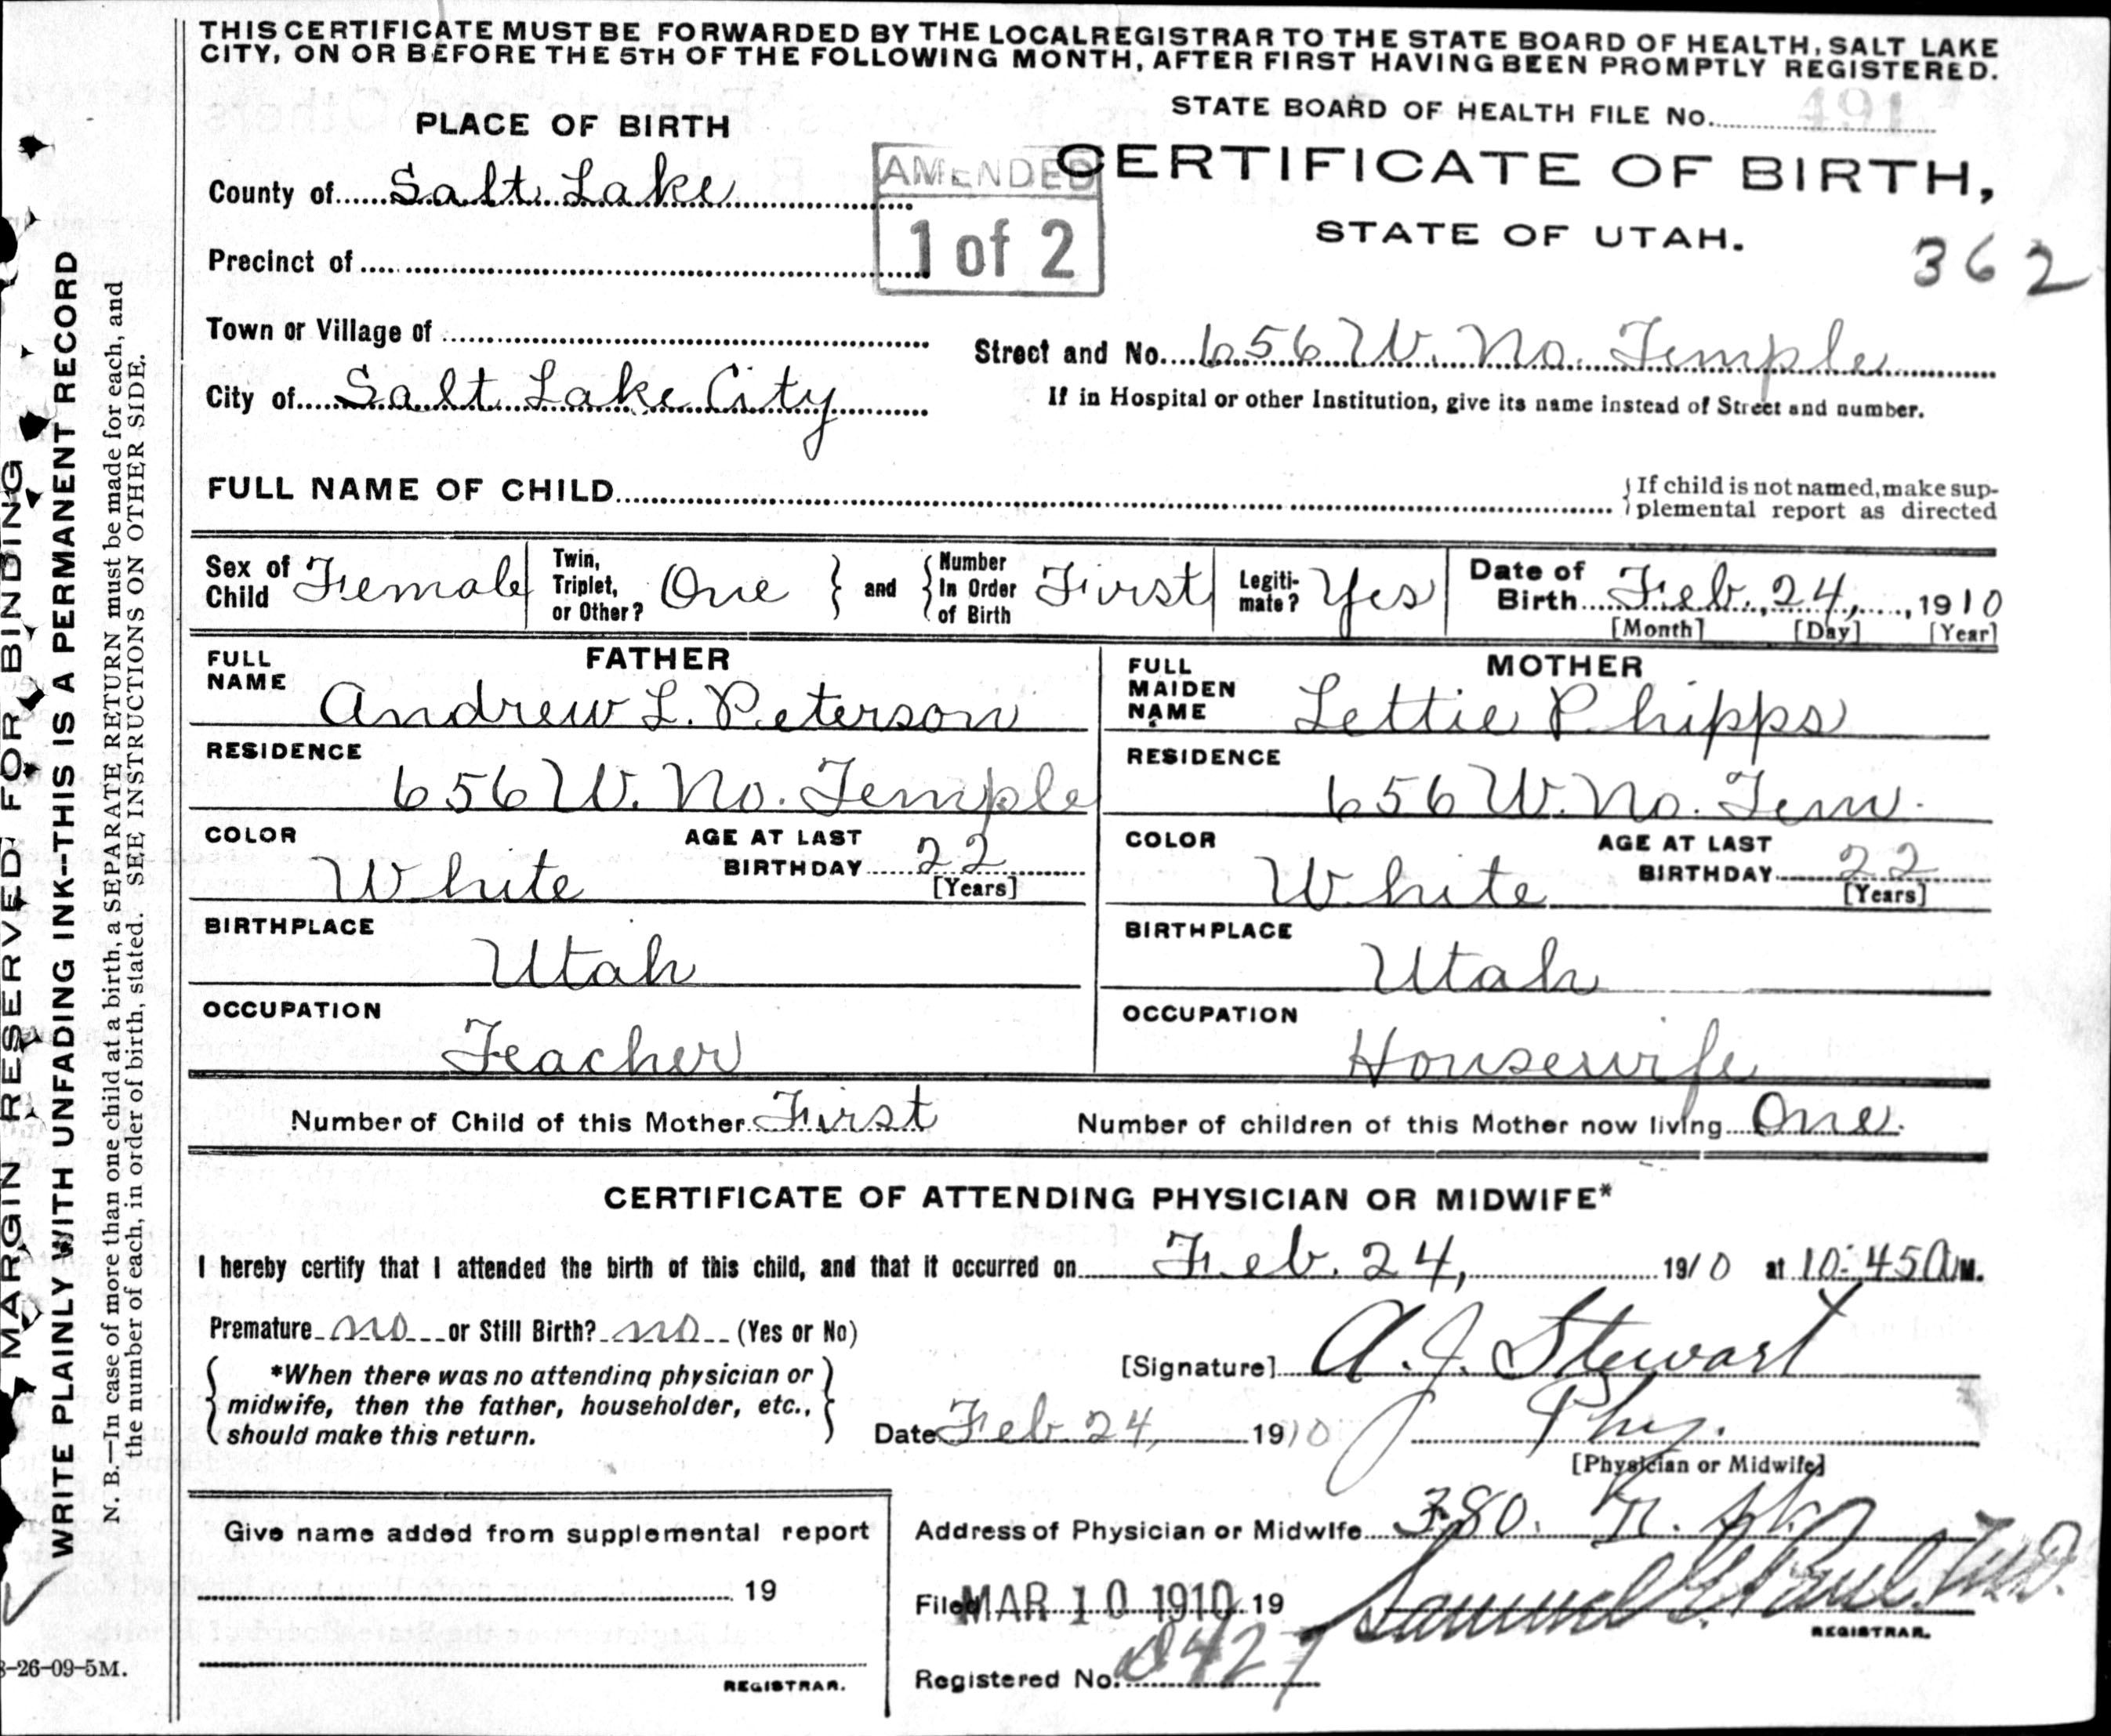 THIS CERTIFICATE MUST BE FORWARDED BY THE LOCAL REGISTRAR TO THE STATE BOARD OF HEALTH, SALT LAKE
CITY, ON OR BEFORE THE 5TH OF THE FOLLOWING MONTH, AFTER FIRST HAVING BEEN PROMPTLY REGISTERED.
STATE BOARD OF HEALTH FILE No. 491
PLACE OF BIRTH
AMENDED
1 of 2
CERTIFICATE OF BIRTH,
STATE OF UTAH.
362
County of Salt Lake
Precinct of
Town or Village of
Street and No. 656 W. No. Temple
City of Salt Lake City
If in Hospital or other Institution, give its name instead of Street and number.
FULL NAME OF CHILD
{If child is not named, make sup-
plemental report as directed
Sex of Child Female
Twin, Triplet, or Other? One } and { Number In Order of Birth First
Legiti-mate? Yes
Date of Birth Feb. 24, 1910
[Month] [Day] [Year]
FATHER
FULL NAME Andrew L. Peterson
RESIDENCE
656 W. No. Temple
COLOR White AGE AT LAST BIRTHDAY 22 [Years]
BIRTHPLACE
Utah
OCCUPATION
Teacher
MOTHER
FULL MAIDEN NAME Lettie Phipps
RESIDENCE
656 W. No. Tem.
COLOR White AGE AT LAST BIRTHDAY 22 [Years]
BIRTHPLACE
Utah
OCCUPATION
Housewife
Number of Child of this Mother First Number of children of this Mother now living One.
CERTIFICATE OF ATTENDING PHYSICIAN OR MIDWIFE*
I hereby certify that I attended the birth of this child, and that it occurred on Feb. 24, 1910 at 10:45 A M.
Premature no or Still Birth? no (Yes or No)
{ *When there was no attending physician or
midwife, then the father, householder, etc.,
should make this return. }
[Signature] A. J. Stewart
Date Feb 24, 1910 Phy.
[Physician or Midwife]
Give name added from supplemental report
19
REGISTRAR.
Address of Physician or Midwife 380.
Filed MAR 10 1910 19 Samuel G. Paul. M.D.
REGISTRAR.
Registered No. 0427
MARGIN RESERVED FOR BINDING
WRITE PLAINLY WITH UNFADING INK--THIS IS A PERMANENT RECORD
N. B.—In case of more than one child at a birth, a SEPARATE RETURN must be made for each, and
the number of each, in order of birth, stated. SEE INSTRUCTIONS ON OTHER SIDE.
-26-09-5M.